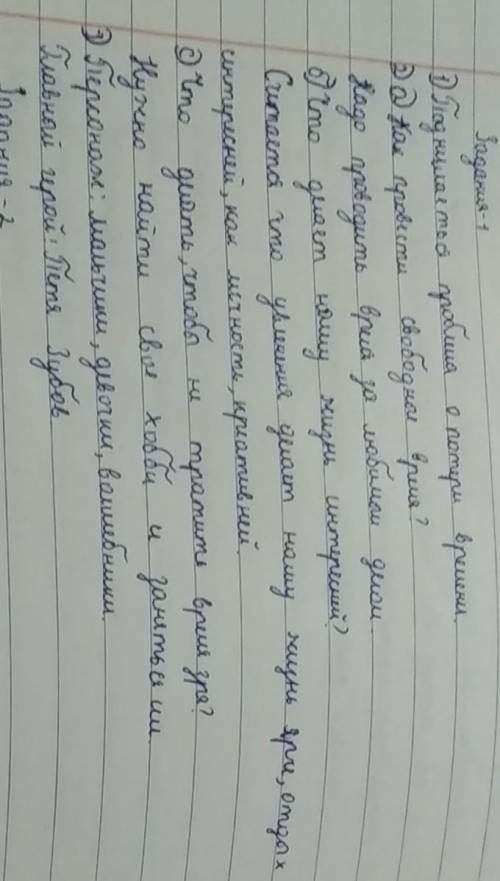 Задания-1
1) Поднимается проблема о потери времени.
2) а) Как провести свободное время?
Надо проводить время за любимым делом.
б) Что делает нашу жизнь интересней?
Считается что увлечения делает нашу жизнь ярче, отдых
интересней, как личность, креативней.
с) Что делать, чтобы не тратить время зря?
Нужно найти свое хобби и заняться им.
3) Персонажи: мальчики, девочки, волшебники.
Главной герой: Петя Зубов
Задания-2